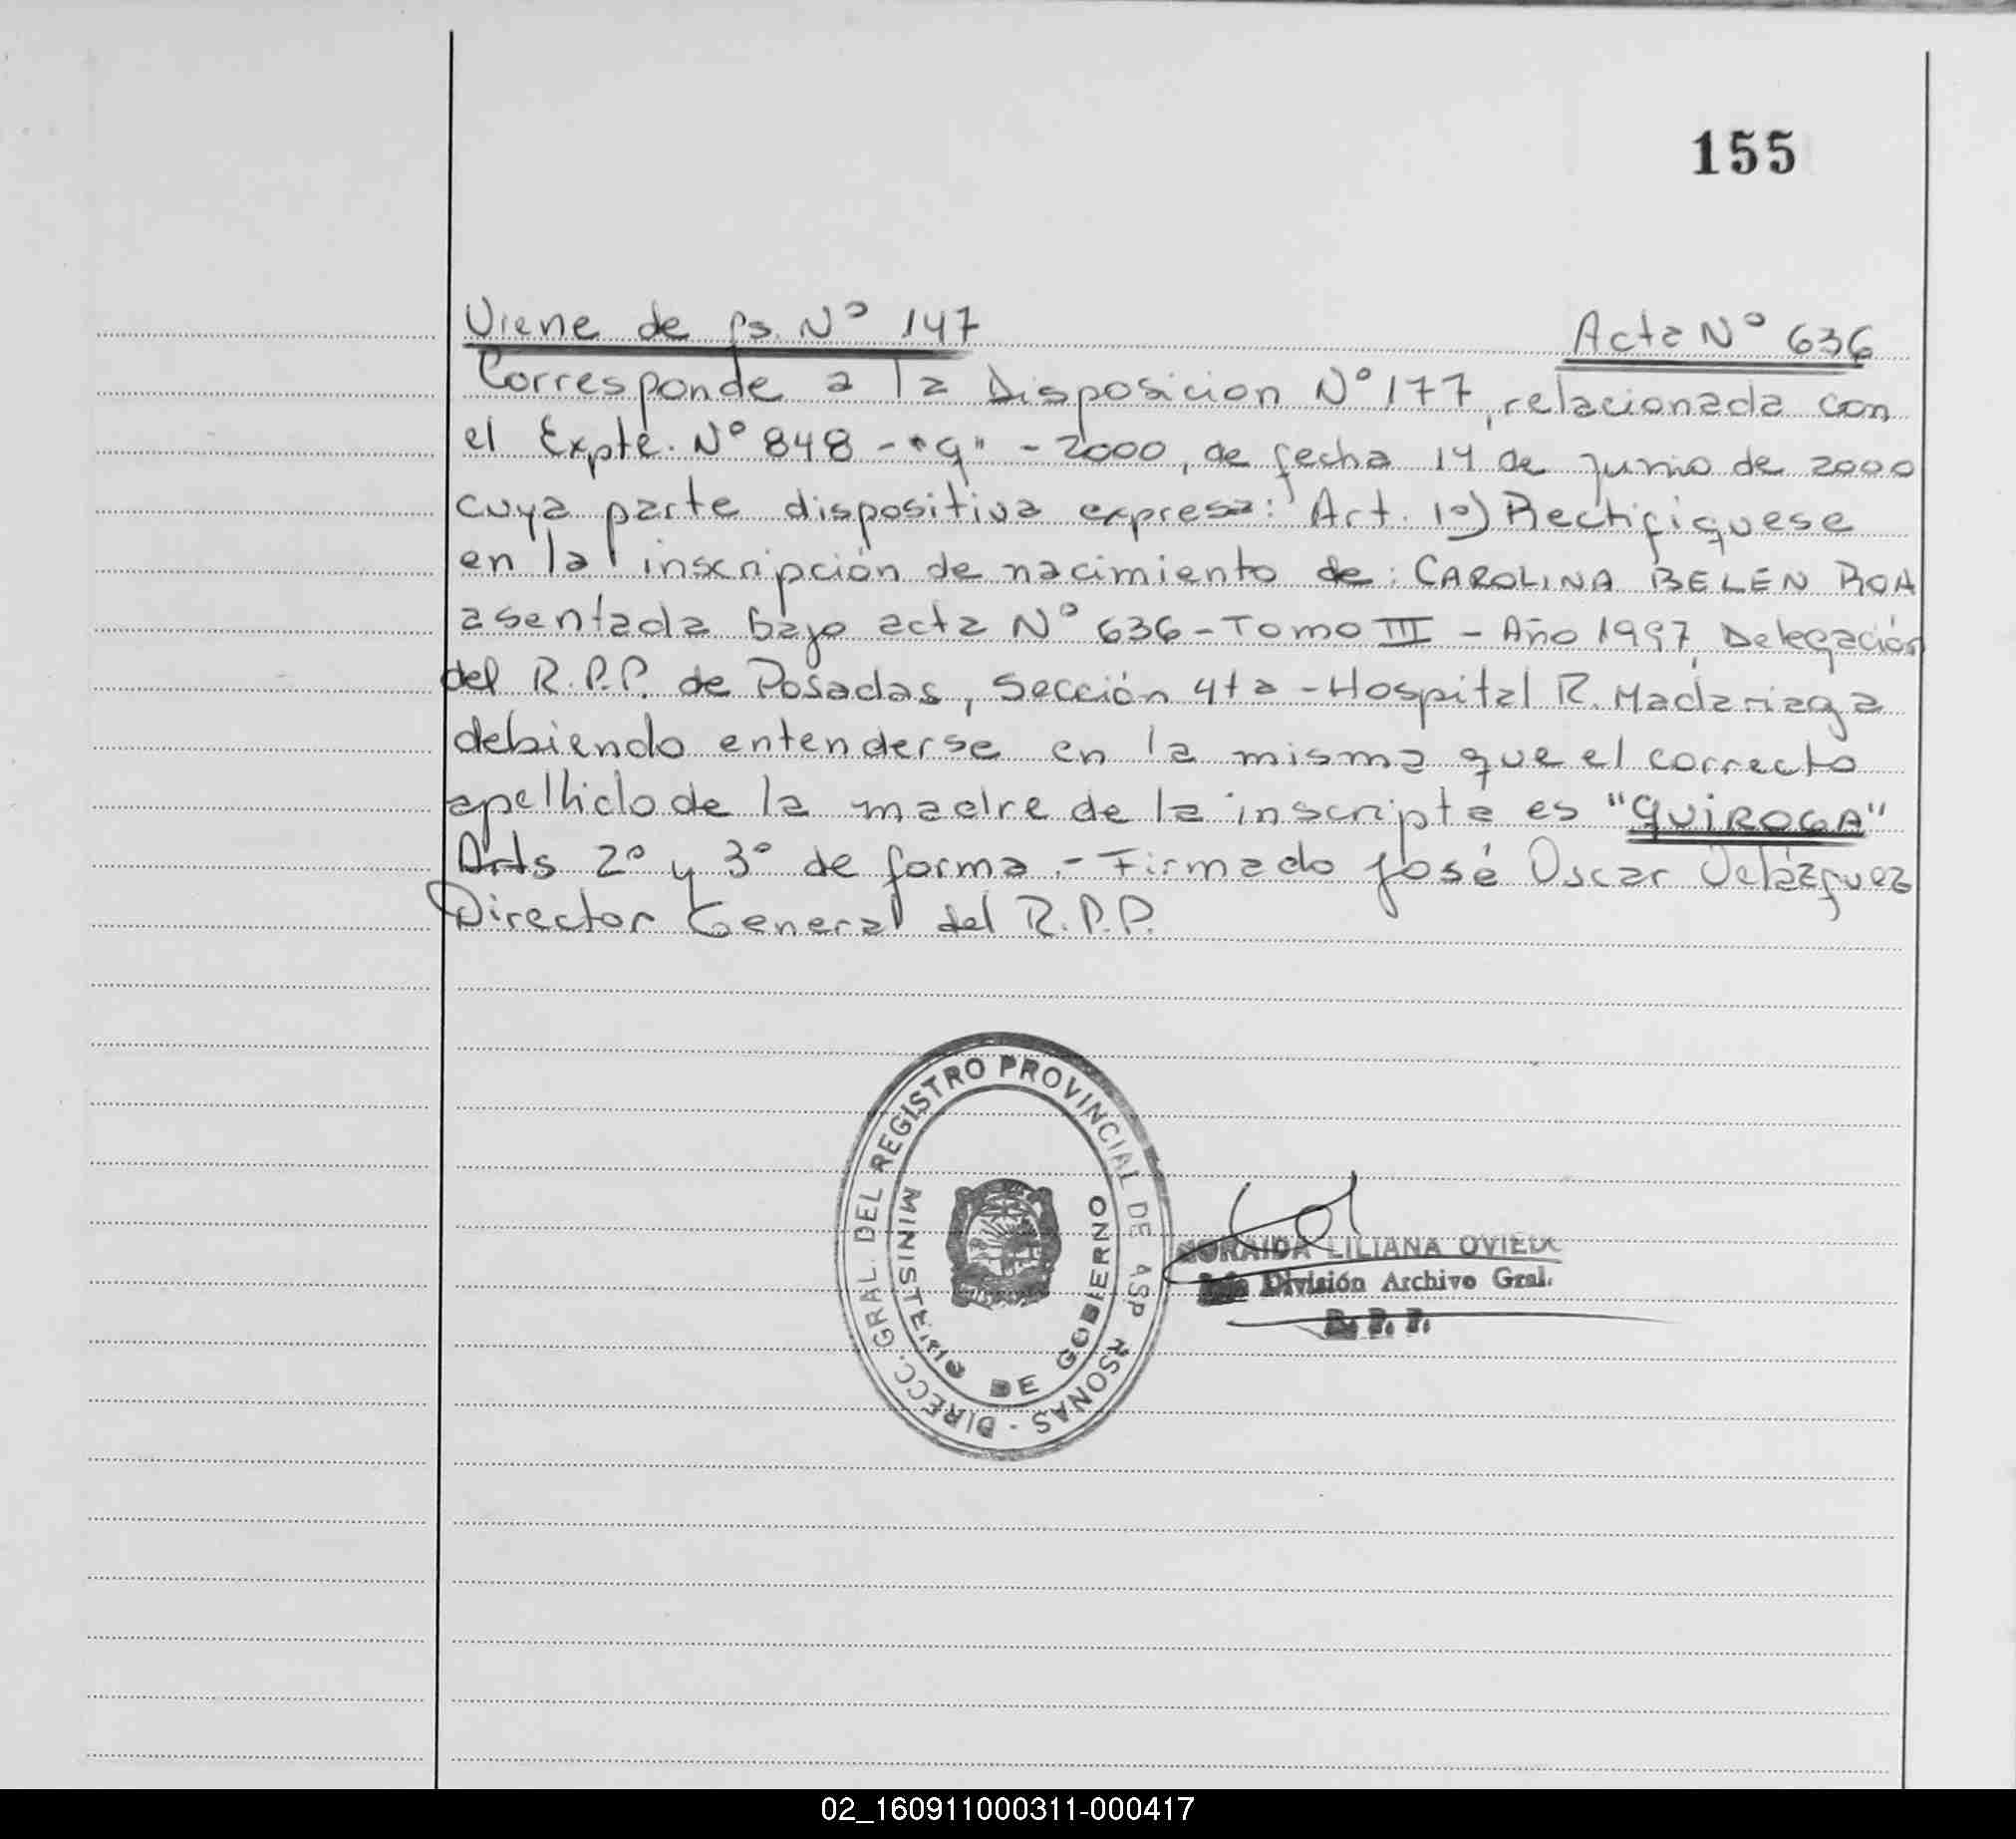 155
Viene de fs. Nº 147
Acta Nº 636
Corresponde a la Disposicion Nº 177, relacionada con
el Expte. Nº 848 - "q" - 2000, de fecha 14 de junio de 2000
cuya parte dispositiva expresa: Art. 1º) Rectifiquese
en la inscripción de nacimiento de: CAROLINA BELEN ROA
asentada bajo acta Nº 636 - Tomo III - Año 1997, Delegación
del R.P.P. de Posadas, Sección 4ta - Hospital R. Madariaga
debiendo entenderse en la misma que el correcto
apellido de la madre de la inscripta es "QUIROGA"
Arts 2º y 3º de forma.- Firmado José Oscar Velázquez
Director General del R.P.P.
DIRECC. GRAL. DEL REGISTRO PROVINCIAL DE PERSONAS -
MINISTERIO DE GOBIERNO
LILIANA OVIEDO
División Archivo Gral.
R. P. P.
02_160911000311-000417